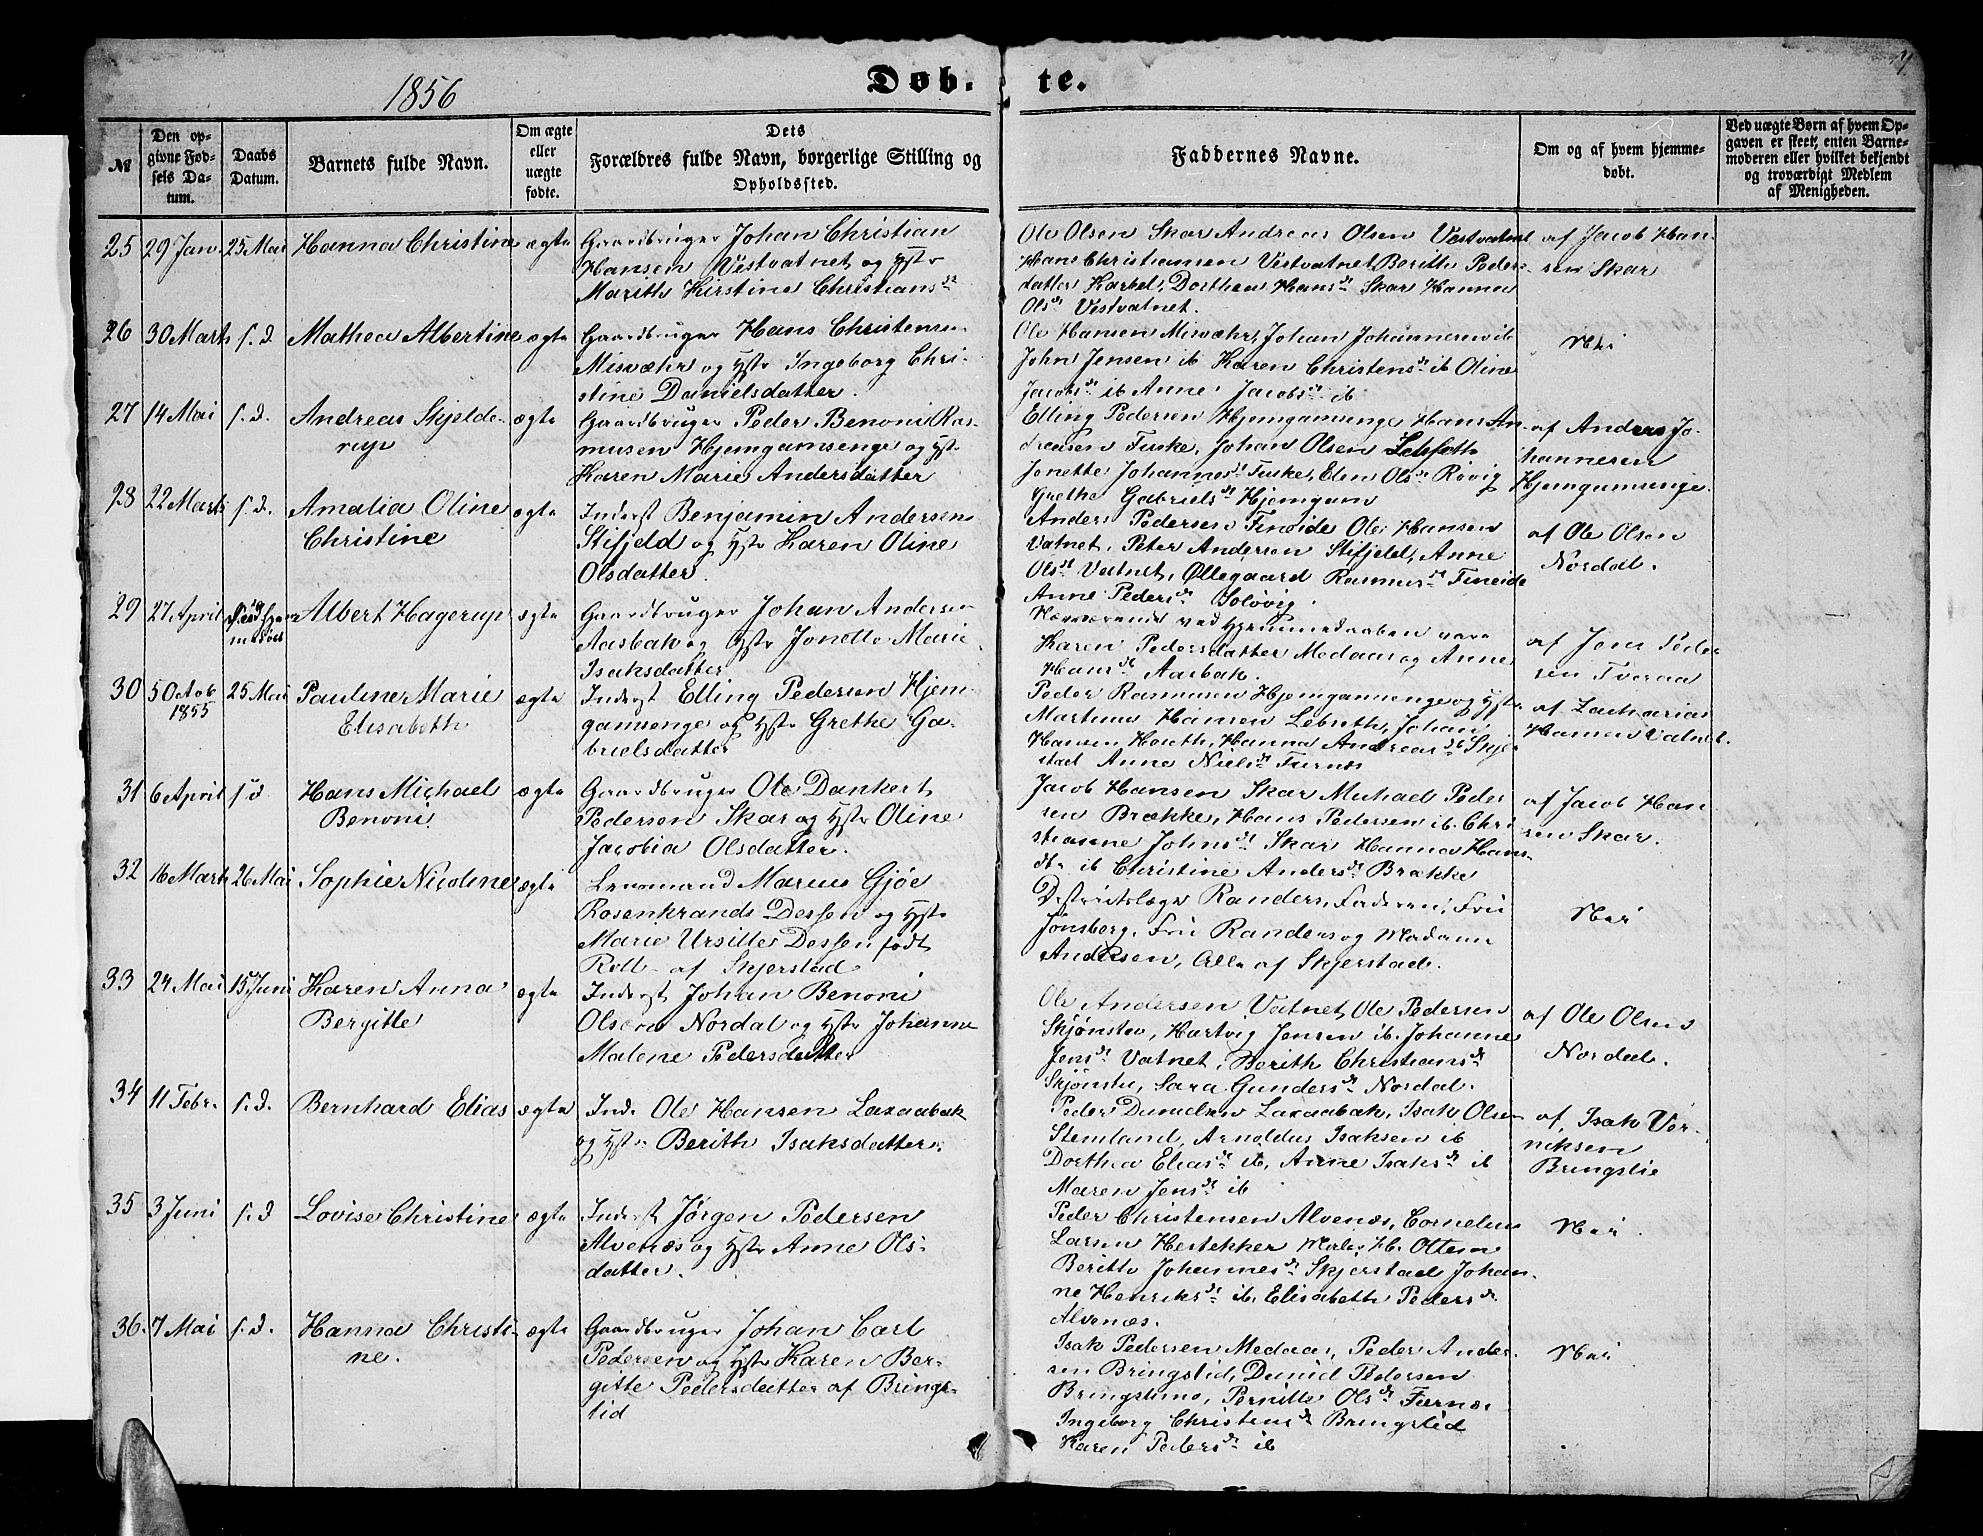 1856
Døb-
te.
№
Den op-
givne Fød-
sels Da-
tum.
Daabs
Datum.
Barnets fulde Navn.
Om ægte
eller
uægte
fødte.
Dets
Forældres fulde Navn, borgerlige Stilling og
Opholdssted.
Faddernes Navne.
Om og af hvem hjemme-
døbt.
Ved uægte Børn af hvem Op-
gaven er skeet, enten Barne-
moderen eller hvilket bekjendt
og troværdigt Medlem
af Menigheden.
25 29 Jan. 25 Mai Hanna Christine ægte
Gaardbruger Johan Christian
Hansen Vestvatnet og Hstr
Marith Kirstine Christiansdr
Ole Olsen Skar Andreas Olsen Vestvatnet
Hans Christiansen Vestvatnet, Berith Peders-
datter Karbel, Dorthea Hansdr Skar Hanna
Olsdr Vestvatnet.
af Jacob Han-
sen Skar
26 30 Marts s. d. Mathea Albertine ægte
Gaardbruger Hans Christensen
Misvæhr og Hstr Ingeborg Chri-
stine Danielsdatter.
Ole Hansen Misvæhr, Johan Johannesen ib
John Jensen ib Karen Christensdr ib Oline
Jacobsdr ib Anne Jacobsdr ib
Nei
27 14 Mai s. d. Andreas Skjelde-
rup
ægte
Gaardbruger Peder Benoni Ras-
musen Hjemgamsenge og Hstr
Karen Marie Andersdatter
Elling Pedersen Hjemgamsenge Hans An-
dreasen Fuske, Johan Olsen
Jonette Johannesdr Fuske, Elen Olsdr Røvig
Grethe Gabrielsdr Hjemgam
af Anders Jo-
hannesen
Hjemgamsenge
28 22 Marts s. d. Amalia Oline
Christine
ægte
Inderst Benjamin Andersen
Stifjeld og Hstr Karen Oline
Olsdatter.
Anders Pedersen Fineide Ole Hansen
Vatnet, Peter Andersen Stifjeld, Anne
Olsdr Vatnet, Øllegaard Rasmusdr Fineide
Anne Pedersdr Soløvig.
af Ole Olsen
Nordal.
29 27 April Albert Hagerup ægte
Gaardbruger Johan Andersen
Aasbak og Hstr Jonette Marie
Isaksdatter
Nærværende ved Hjemmedaaben vare
Karen Pedersdatter Medaas og Anne
Hansdr Aasbak.
af Jens Peder-
sen Tveraa
30 5 Octob
1855
25 Mai Pauline Marie
Elisabeth
ægte
Inderst Elling Pedersen Hjem-
gamsenge og Hstr Grethe Ga-
brielsdatter
Peder Rasmusen Hjemgamsenge og Hstr
Martinus Hansen Lebseth, Johan
Hansen Hoseth, Hanna Andreasdr Skjer-
stad Anne Nielsdr Furnes
af Zacharias
Hansen Vatnet.
31 6 April s. d Hans Michael
Benoni.
ægte
Gaardbruger Ole Dankert
Pedersen Skar og Hstr Oline
Jacobia Olsdatter.
Jacob Hansen Skar Michael Peder-
sen Brække, Hans Pedersen ib. Chri-
stianne Johnsdr Skar Hanna Hans-
dtr ib Christine Andersdr Brække
af Jacob Han-
sen Skar.
32 16 Marts 26 Mai Sophie Nicoline ægte
Lensmand Marius Gjøe
Rosenkrands Dessen og Hstr
Marie Ursille Dessen født
Roll af Skjerstad
Destriktslæge Randers, Faderen, Fru
Jønsberg, Fru Randers og Madame
Andersen, Alle af Skjerstad.
Nei
33 24 Mai 15 Juni Karen Anna
Bergitte
ægte
Inderst Johan Benoni
Olsen Nordal og Hstr Johanne
Malene Pedersdatter
Ole Andersen Vatnet, Ole Pedersen
Skjønstu, Hartvig Jensen ib. Johanne
Jensdr Vatnet, Berith Christiansdr
Skjønstu, Sara Gundersdr Nordal.
af Ole Olsen
Nordal.
34 11 Febr. s. d. Bernhard Elias ægte
Ind. Ole Hansen Laxaabak
og Hstr Berith Isaksdatter.
Peder Danielsen Laxaabak, Isak Olsen
Stemland, Arnoldus Isaksen ib
Dorthea Eliasdr ib, Anne Isaksdr ib
Maren Jensdr ib
af, Isak Ver-
niksen
Bringslie
35 3 Juni s. d Lovise Christine ægte
Inderst Jørgen Pedersen
Alvenæs og Hstr Anne Ols-
datter.
Peder Christensen Alvenæs, Cornelius
Larsen Hestekker H. Ottesen
Berith Johannesdr Skjerstad Johan-
ne Henriksdr ib, Elisabeth Pedersdr
Alvenæs.
Nei.
36. 7 Mai s. d. Hanna Christi-
ne.
ægte
Gaardbruger Johan Carl
Pedersen og Hstr Karen Ber-
gitte Pedersdatter af Brings-
lid
Isak Pedersen Medaas, Peder Ander-
sen Bringslid, Daniel Pedersen
Bringslimo, Pernille Olsdr Furnes
Ingeborg Christensdr Bringslid
Karen Pedersdr ib
Nei